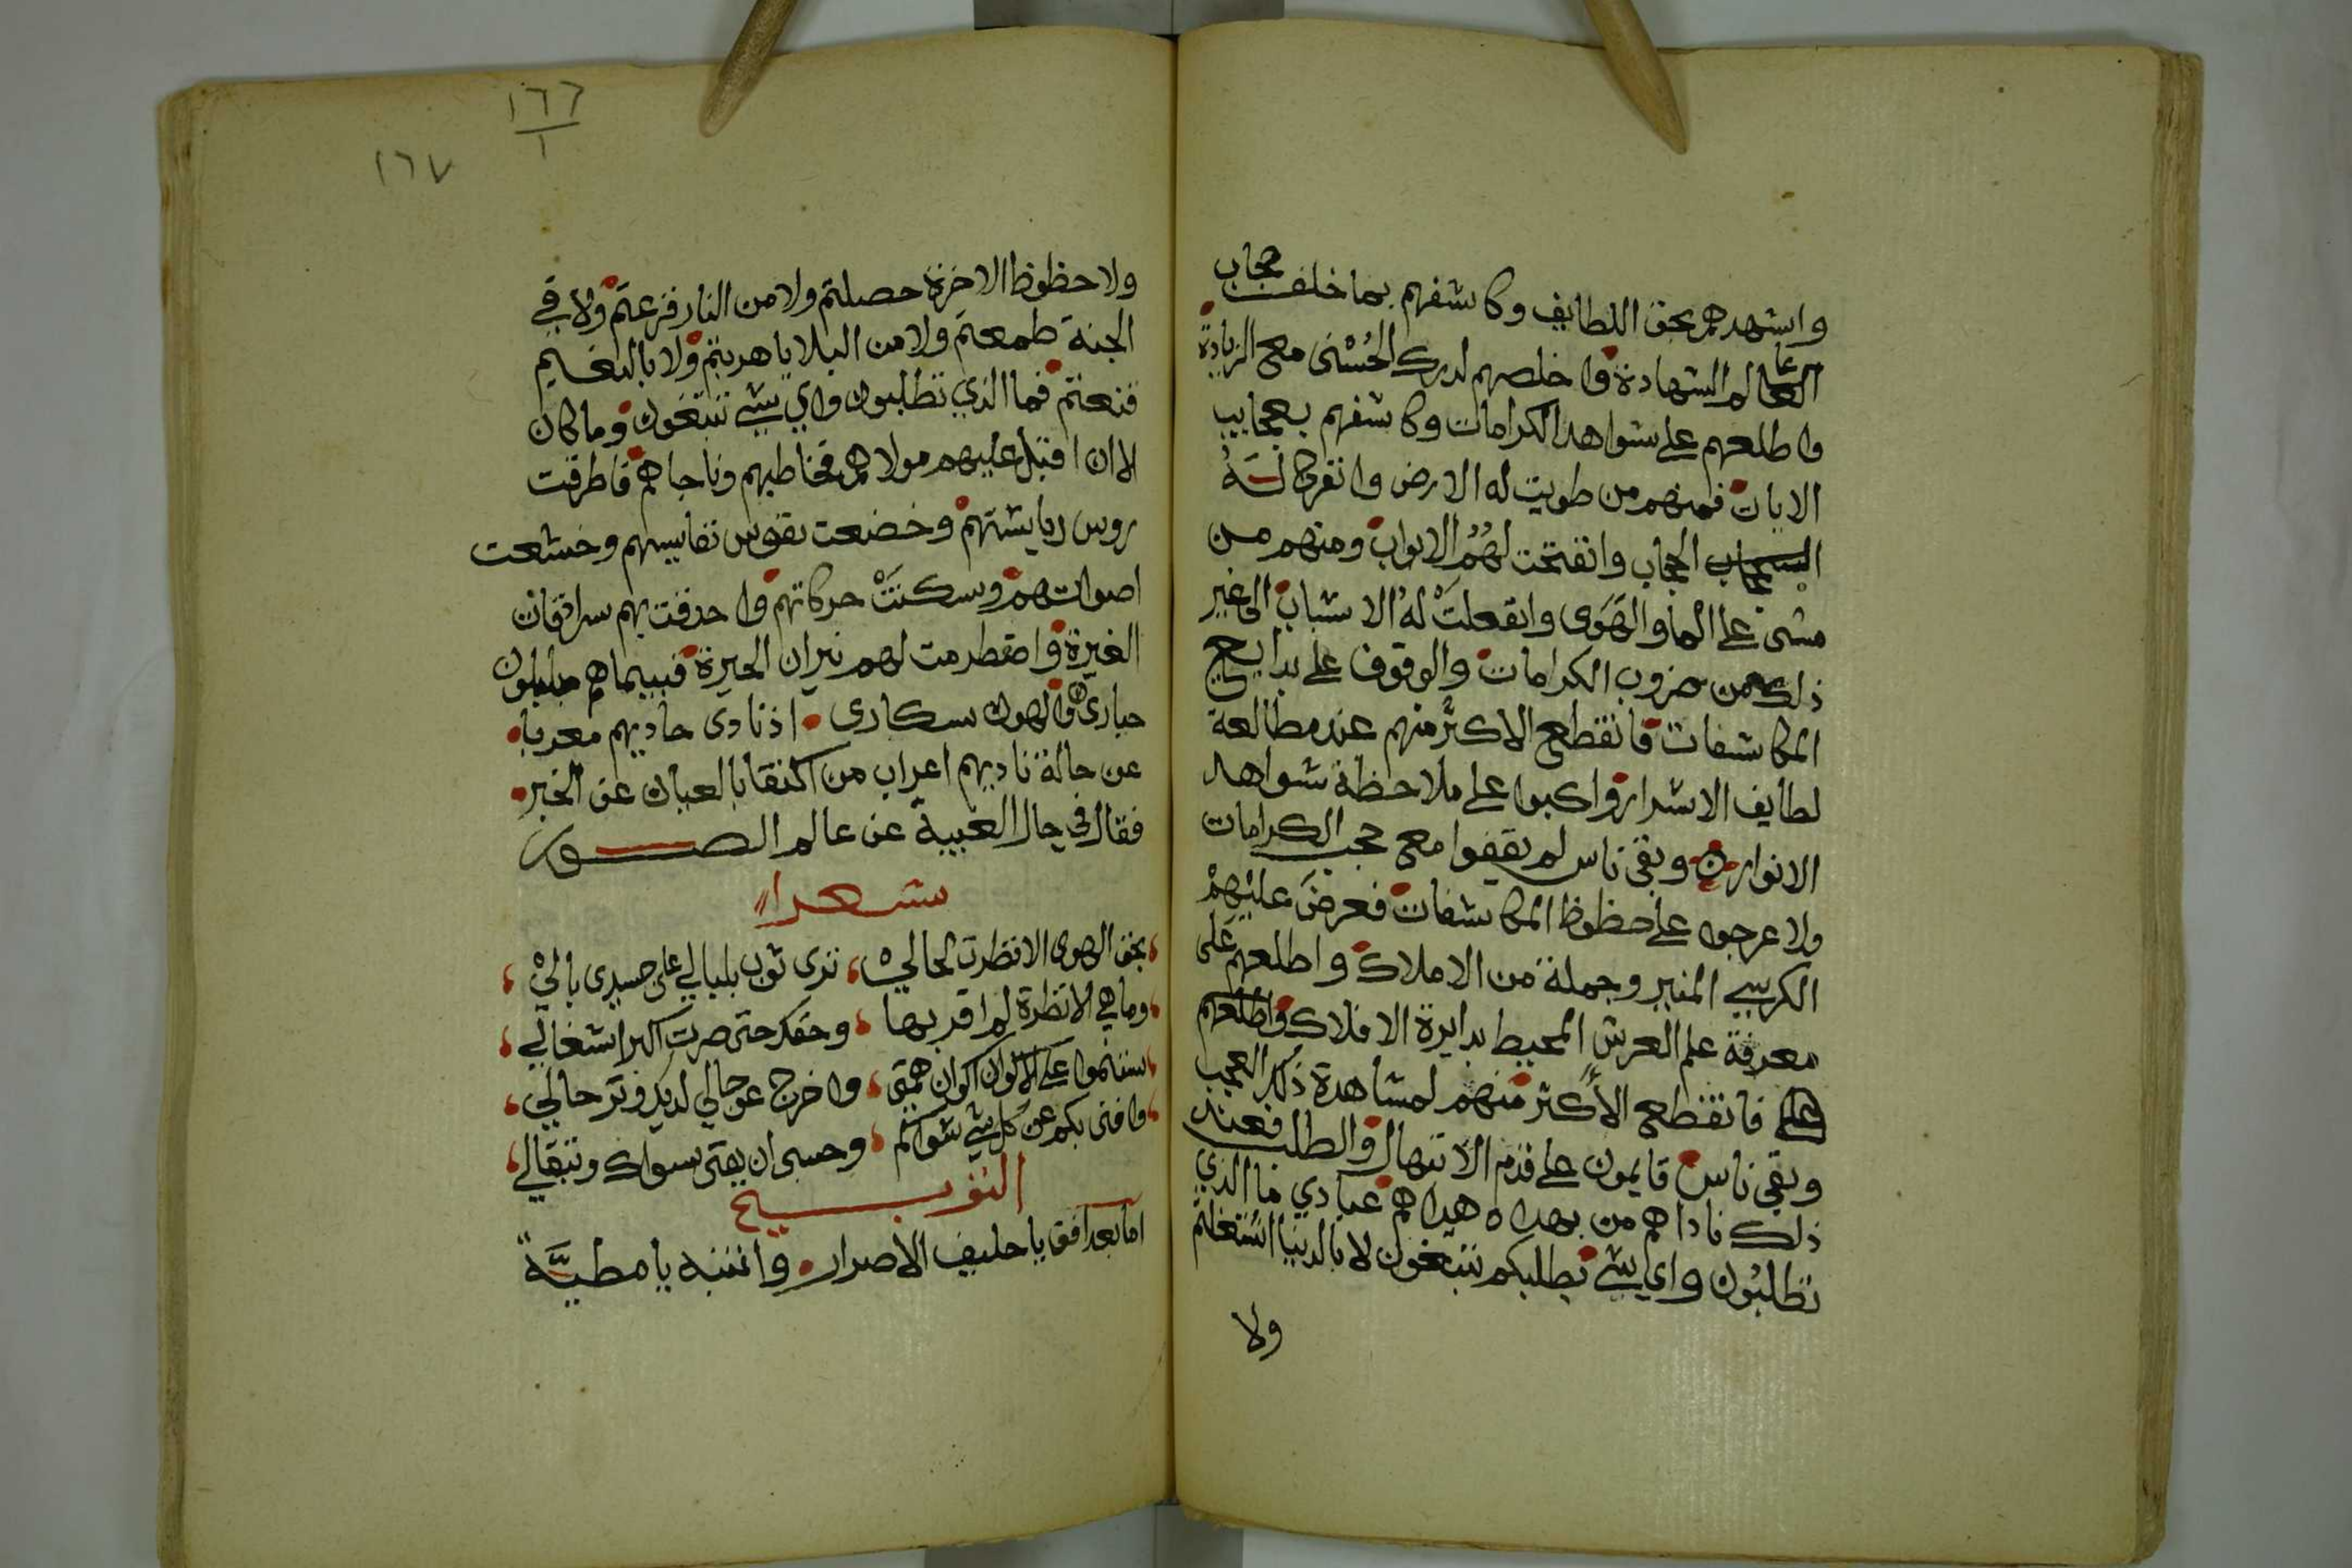 واشهدهم بحق اللطايف وكاشفهم بما خلف حجاب
العالم الشهادة واخلصهم لدرك الحُسْنى مع الزيادة
واطلعهم على شواهد الكرامات وكاشفهم بعجايب
الايات فمنهم من طويت له الارض وانفرك لَهُ
الحجاب وانفتحت لهُمُ الابواب ومنهم من
مشى على الما والهَوَى وانفعلتْ لهُ الاشباب الى غير
ذلك من ضروب الكرامات والوقوف على بدايع
المكاشفات فانقطع الاكثر منهم عند مطالعة
لطايف الاسرار واكبوا على ملاحظة شواهد
الانوار وبقى ناس لم يقفوا مع حجب الكرامات
ولا عرجوا على حظوظ المكاشفات فعرضَ عليْهِمْ
الكرسي المنير وجملة من الاملاك واطلعهم عَلى
معرفة علم العرش المحيط بدايرة الافلاك واطلعهم
على فانقطع الأكثر منهم لمشاهدة ذلك العجب
وبقى ناس قايمون على قدم الابتهال والطلب فعند
ذلك ناداهم من بهداه هداهم عبادي ما الذي
تطلبُون واي شي بطلبكم تبتغون لا بالدنيا اشتغلتم
ولا
١٦٦
١
١٦٧
ولا حظوظ الاخرة حصلتم ولا من النار فزعتم ولا في
الجنة طمعتم ولا من البلايا هربتم ولا بالنعيم
قنعتم فما الذي تطلبون واي شي تبتغون وما كان
الا ان اقبل عليهم مولاهم فخاطبهم وناجاهم فاطرقت
روس رياستهم وخضعت نفوس نفايسهم وخشعت
اصواتهم وسكنتْ حركاتهم واحدقت بهم سرادقات
الغيرة واضطرمت لهم نيران الحيرة فبينما هم مبلبلون
حيارى والهون سكارى اذ نادى حاديهم معربا
عن حالة ناديهم اعراب من اكتفا بالعيان عن الخبر
فقال في حال الغيبة عن عالم الصور
شعرا
بحق الهوى الا نظرت لحالي ترى ثوب بلبالي على جسدى بالي
وما هي الا نظرة لم اقر بها وحقك حتى صرت اكبر اشغالي
سنموا على الاكوان اكوان همتي واخرج عن حالي لديك وترحالي
وافنى بكم عن كل شي سواكم وحسبى ان يفنى سواك وتبقالي
التوبيخ
اما بعد افق يا حليف الأصرار وانتبه يا مطيَّةً